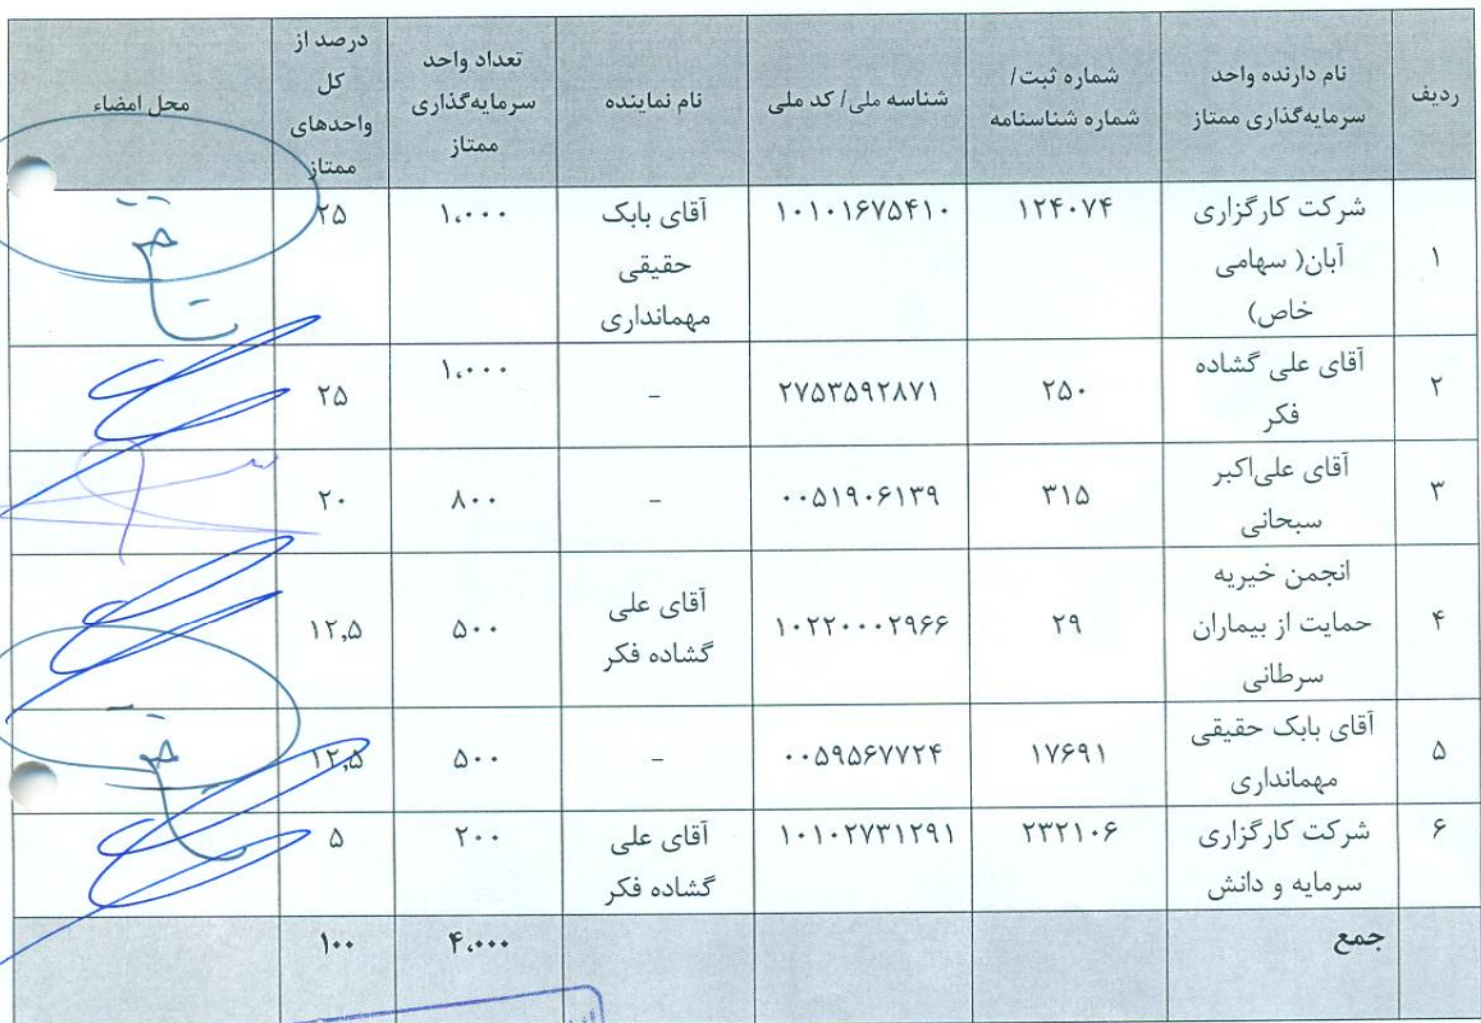 ردیف
نام دارنده واحد
سرمایه‌گذاری ممتاز
شماره ثبت/
شماره شناسنامه
شناسه ملی/ کد ملی
نام نماینده
تعداد واحد
سرمایه‌گذاری
ممتاز
درصد از
کل
واحدهای
ممتاز
محل امضاء
۱
شرکت کارگزاری
آبان( سهامی
خاص)
۱۲۴۰۷۴
۱۰۱۰۱۶۷۵۴۱۰
آقای بابک
حقیقی
مهمانداری
۱،۰۰۰
۲۵
۲
آقای علی گشاده
فکر
۲۵۰
۲۷۵۳۵۹۲۸۷۱
-
۱،۰۰۰
۲۵
۳
آقای علی‌اکبر
سبحانی
۳۱۵
۰۰۵۱۹۰۶۱۳۹
-
۸۰۰
۲۰
۴
انجمن خیریه
حمایت از بیماران
سرطانی
۲۹
۱۰۲۲۰۰۰۲۹۶۶
آقای علی
گشاده فکر
۵۰۰
۱۲,۵
۵
آقای بابک حقیقی
مهمانداری
۱۷۶۹۱
۰۰۵۹۵۶۷۷۲۴
-
۵۰۰
۱۲,۵
۶
شرکت کارگزاری
سرمایه و دانش
۲۳۲۱۰۶
۱۰۱۰۲۷۳۱۲۹۱
آقای علی
گشاده فکر
۲۰۰
۵
جمع
۴،۰۰۰
۱۰۰